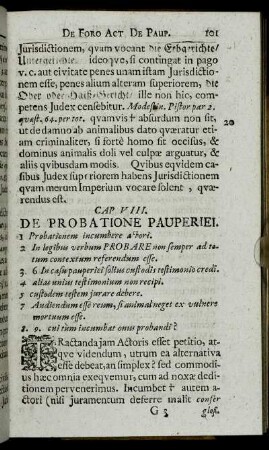 DE FORO ACT. DE PAUP. 101
Jurisdictionem, quam vocant die Erbgerichte/
Untergerichte. ideoque, si contingat in pago
v. c. aut civitate penes unam istam Jurisdictio-
nem esse, penes alium alteram superiorem, die
Ober oder Halß-Gericht/ ille non hic, com-
petens Judex censebitur. Modestin. Pistor par 2.
quæst. 64. per tot. quamvis † absurdum non sit,
ut de damno ab animalibus dato quæratur etiam
criminaliter, si fortè homo sit occisus, &
dominus animalis doli vel culpæ arguatur, &
aliis qvibusdam modis. Quibus eqvidem ca-
sibus Judex superiorem habens Jurisdictionem
quam merum Imperium vocare solent, quæ-
rendus est.
20
CAP. VIII.
DE PROBATIONE PAUPERIEI.
1 Probationem incumbere actori.
2 In legibus verbum PROBARE non semper ad to-
tum contextum referendum esse.
3. 6 In casu pauperiei solius custodis testimonio credi.
4 alias unius testimonium non recipi.
5 custodem testem jurare debere.
7 Audiendum esse reum, si animal neget ex vulnere
mortuum esse.
8. 9. cui tum incumbat onus probandi?
TRactanda jam Actoris esset petitio, at-
que videndum, utrum ea alternativa
esse debeat, an simplex? sed commodi-
us hæc omnia exeqvemur, cum ad noxæ dedi-
tionem pervenerimus. Incumbet † autem a-
ctori (nisi juramentum deferre malit confer
G 3 gloss.